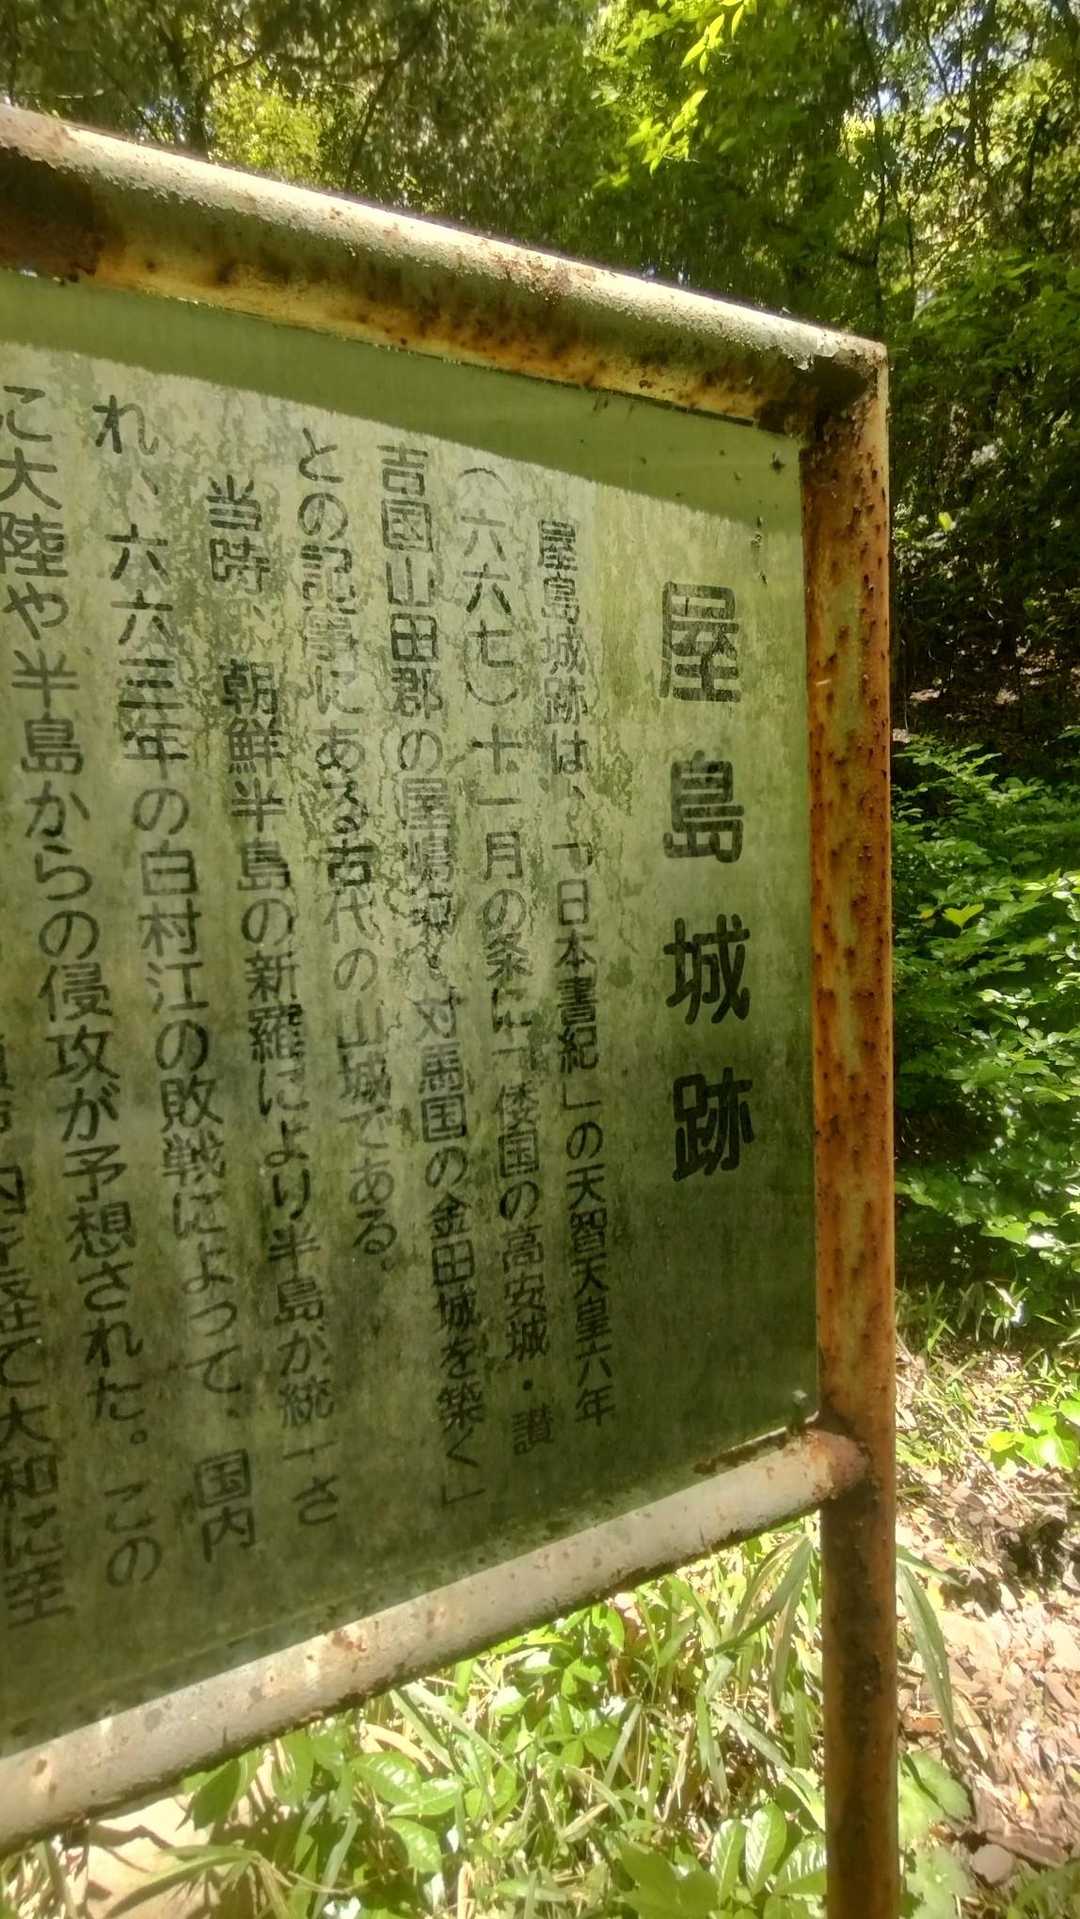 屋島城跡
屋島城跡は、「日本書紀」の天智天皇六年
(六六七)十一月の条に「倭国の高安城・讃
吉国山田郡の屋嶋城・対馬国の金田城を築く」
との記事にある古代の山城である。
当時、朝鮮半島の新羅により半島が統一さ
れ、六六三年の白村江の敗戦によって、国内
に大陸や半島からの侵攻が予想された。この
経て大和に至